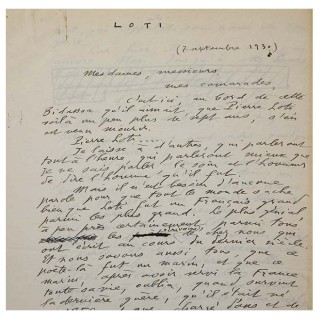 LOTI
(7 septembre 1930)
Mesdames, messieurs,
mes camarades,
C'est ici, au bord de cette
Bidassoa qu'il aimait que Pierre Loti
voilà un peu plus de sept ans, s'en
est venu mourir.
Pierre Loti....
Je laisse à d'autres, qui parleront
tout à l'heure, qui parleront mieux que
je ne sais parler le soin et l'honneur
de dire l'homme qu'il fut.
Mais il n'est besoin d'aucune
parole pour que tout le monde sache
bien que Loti fut un Français grand
parmi les plus grands, le plus génial
à peu près certainement parmi tous
les chez nous qui
ont écrit au cours du dernier siècle.
Et nous savons aussi tous que ce
poète-là fut un marin, et que ce
marin, après avoir servi la France
toute sa vie, oublia, quand survint
la dernière guerre, qu'il était né